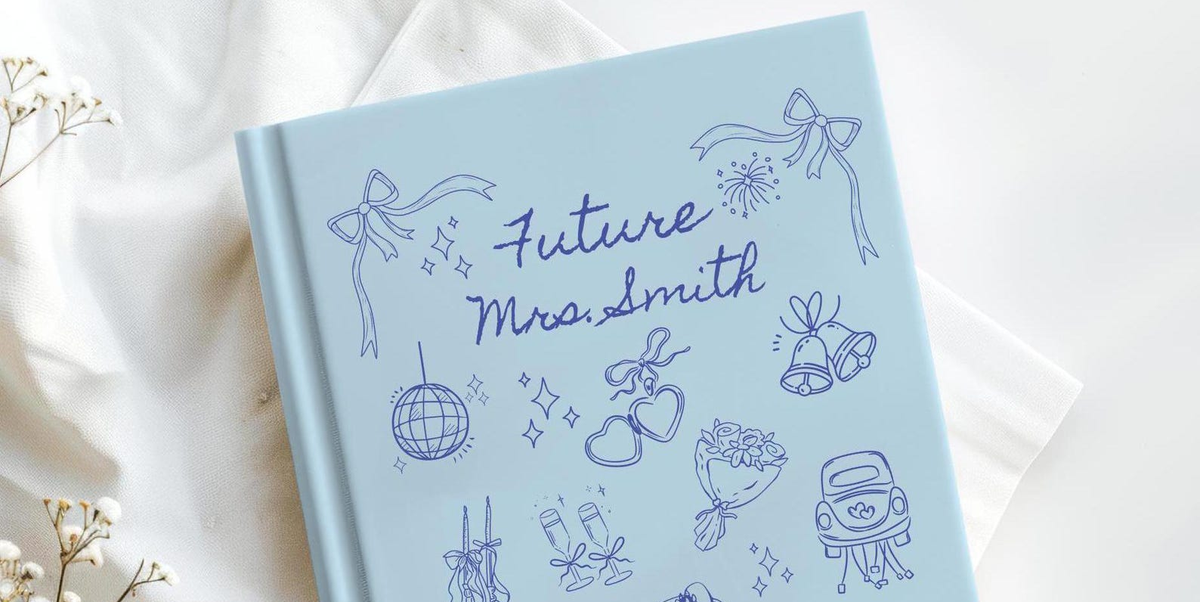 Future
Mrs. Smith